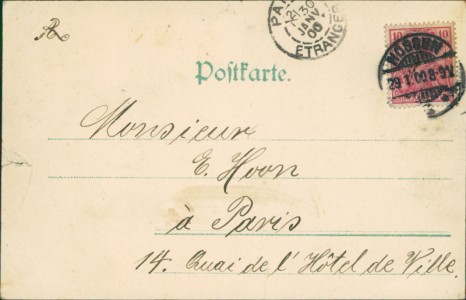 PA
30
JANV.
00
ETRANGER
10 10
NOSSEN
29 1.00.8-9V.
Postkarte.
Monsieur
E. Hoon
à Paris
14. Quai de l'Hôtel de Ville.